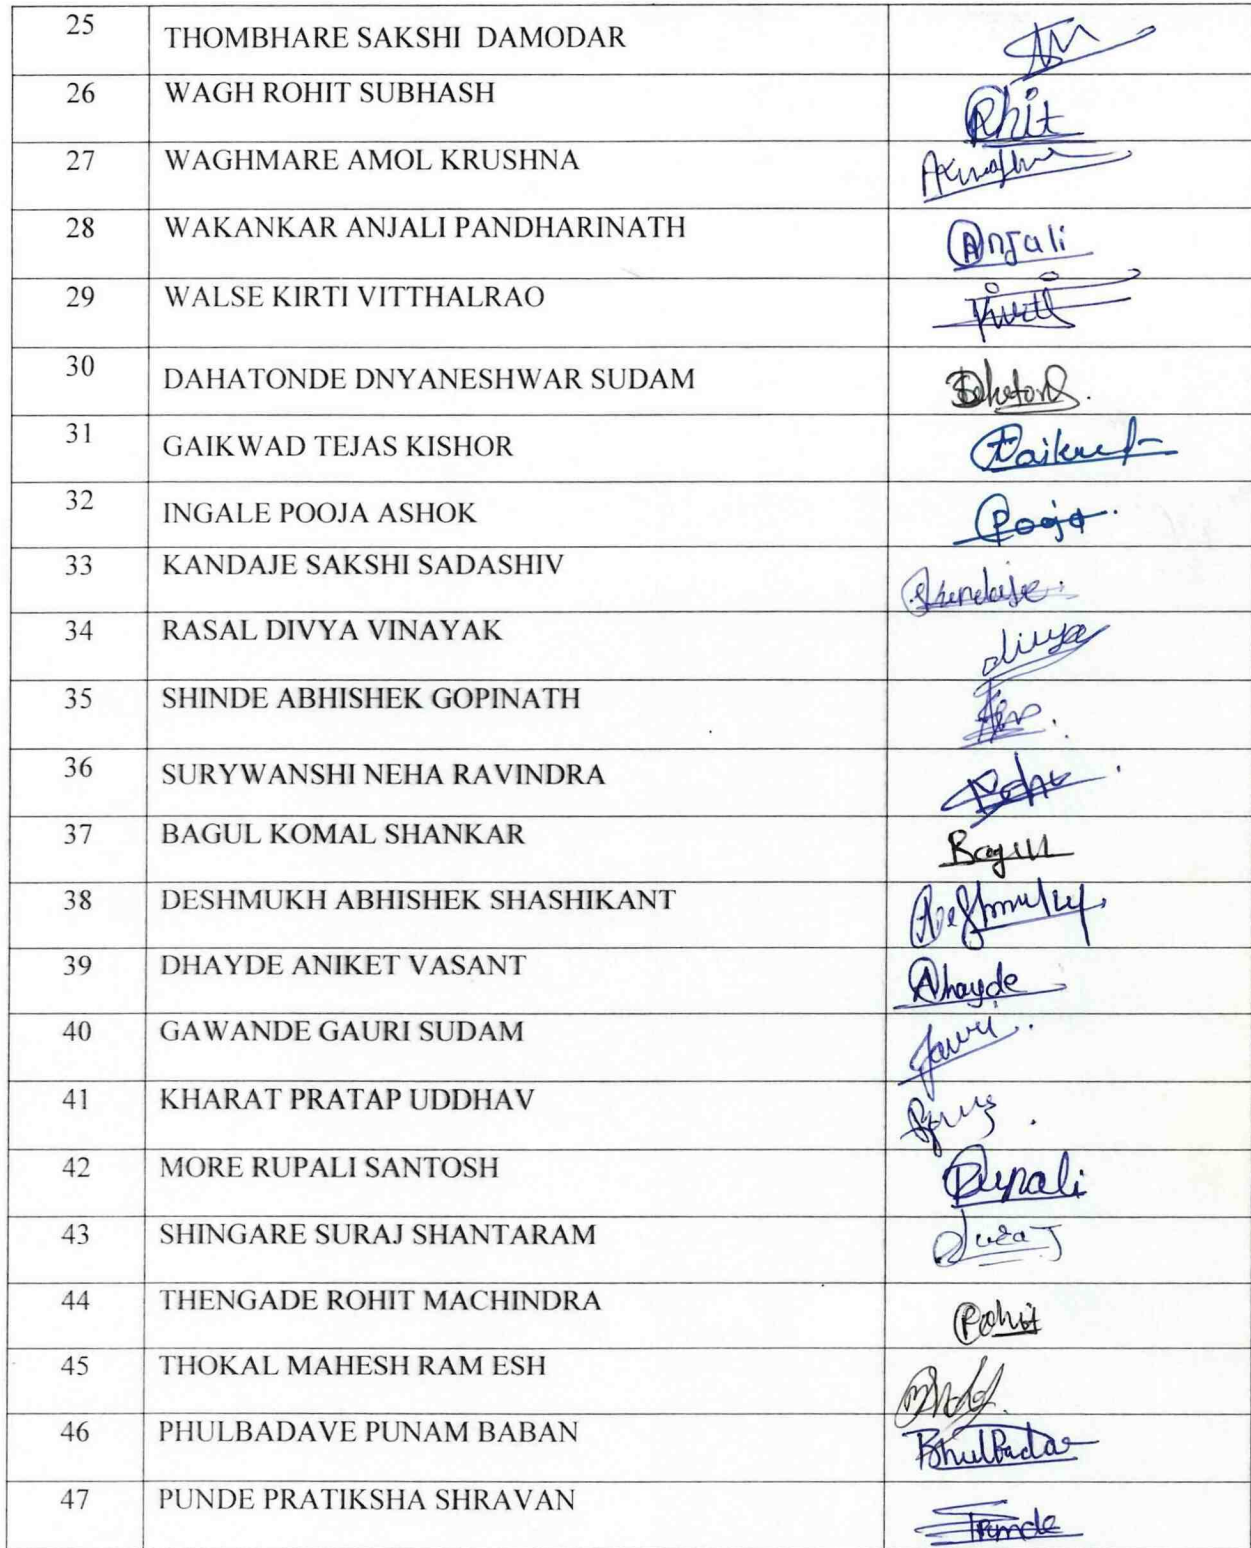 25 THOMBHARE SAKSHI DAMODAR
26 WAGH ROHIT SUBHASH Rohit
27 WAGHMARE AMOL KRUSHNA
28 WAKANKAR ANJALI PANDHARINATH Anjali
29 WALSE KIRTI VITTHALRAO Kirti
30 DAHATONDE DNYANESHWAR SUDAM
31 GAIKWAD TEJAS KISHOR
32 INGALE POOJA ASHOK Pooja
33 KANDAJE SAKSHI SADASHIV
34 RASAL DIVYA VINAYAK divya
35 SHINDE ABHISHEK GOPINATH
36 SURYWANSHI NEHA RAVINDRA
37 BAGUL KOMAL SHANKAR Bagul
38 DESHMUKH ABHISHEK SHASHIKANT
39 DHAYDE ANIKET VASANT Dhayde
40 GAWANDE GAURI SUDAM Gauri
41 KHARAT PRATAP UDDHAV
42 MORE RUPALI SANTOSH Rupali
43 SHINGARE SURAJ SHANTARAM Suraj
44 THENGADE ROHIT MACHINDRA Rohit
45 THOKAL MAHESH RAM ESH
46 PHULBADAVE PUNAM BABAN
47 PUNDE PRATIKSHA SHRAVAN